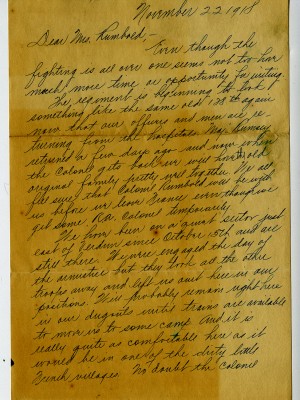 November 22 1918
Dear Mrs. Rumbold:—
Even though the
fighting is all over one seems not to have
much more time or opportunity for writing.
The regiment is beginning to look
something like the same old 128th again
now that our officers and men all re-
turning from the hospitals. Maj. Rumsey
returned a few days ago and now when
the Colonel gets back we will have the old
original family pretty well together. We all
feel sure that Colonel Rumbold will be with
us before we leave France even though we
get some Colonel temporarily.
We have been on a quiet sector just
east of Verdun since October 15th and are
still there. We were engaged the day of
the armistice but they took all the other
troops away and left us out here in our
positions. Will probably remain right here
in our dugouts until trains are available
to move us to some camp. And it is
really quite as comfortable here as it
would be in one of the dirty little
French villages. No doubt the Colonel